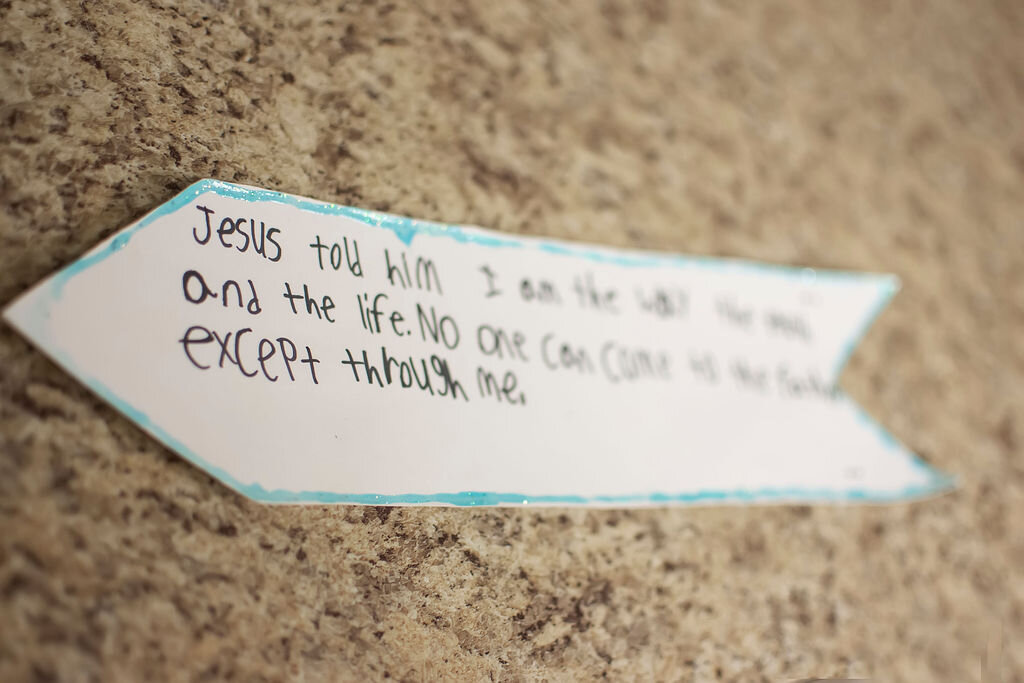 Jesus told him I am the way the
and the life. No one can come to the Father
except through me.